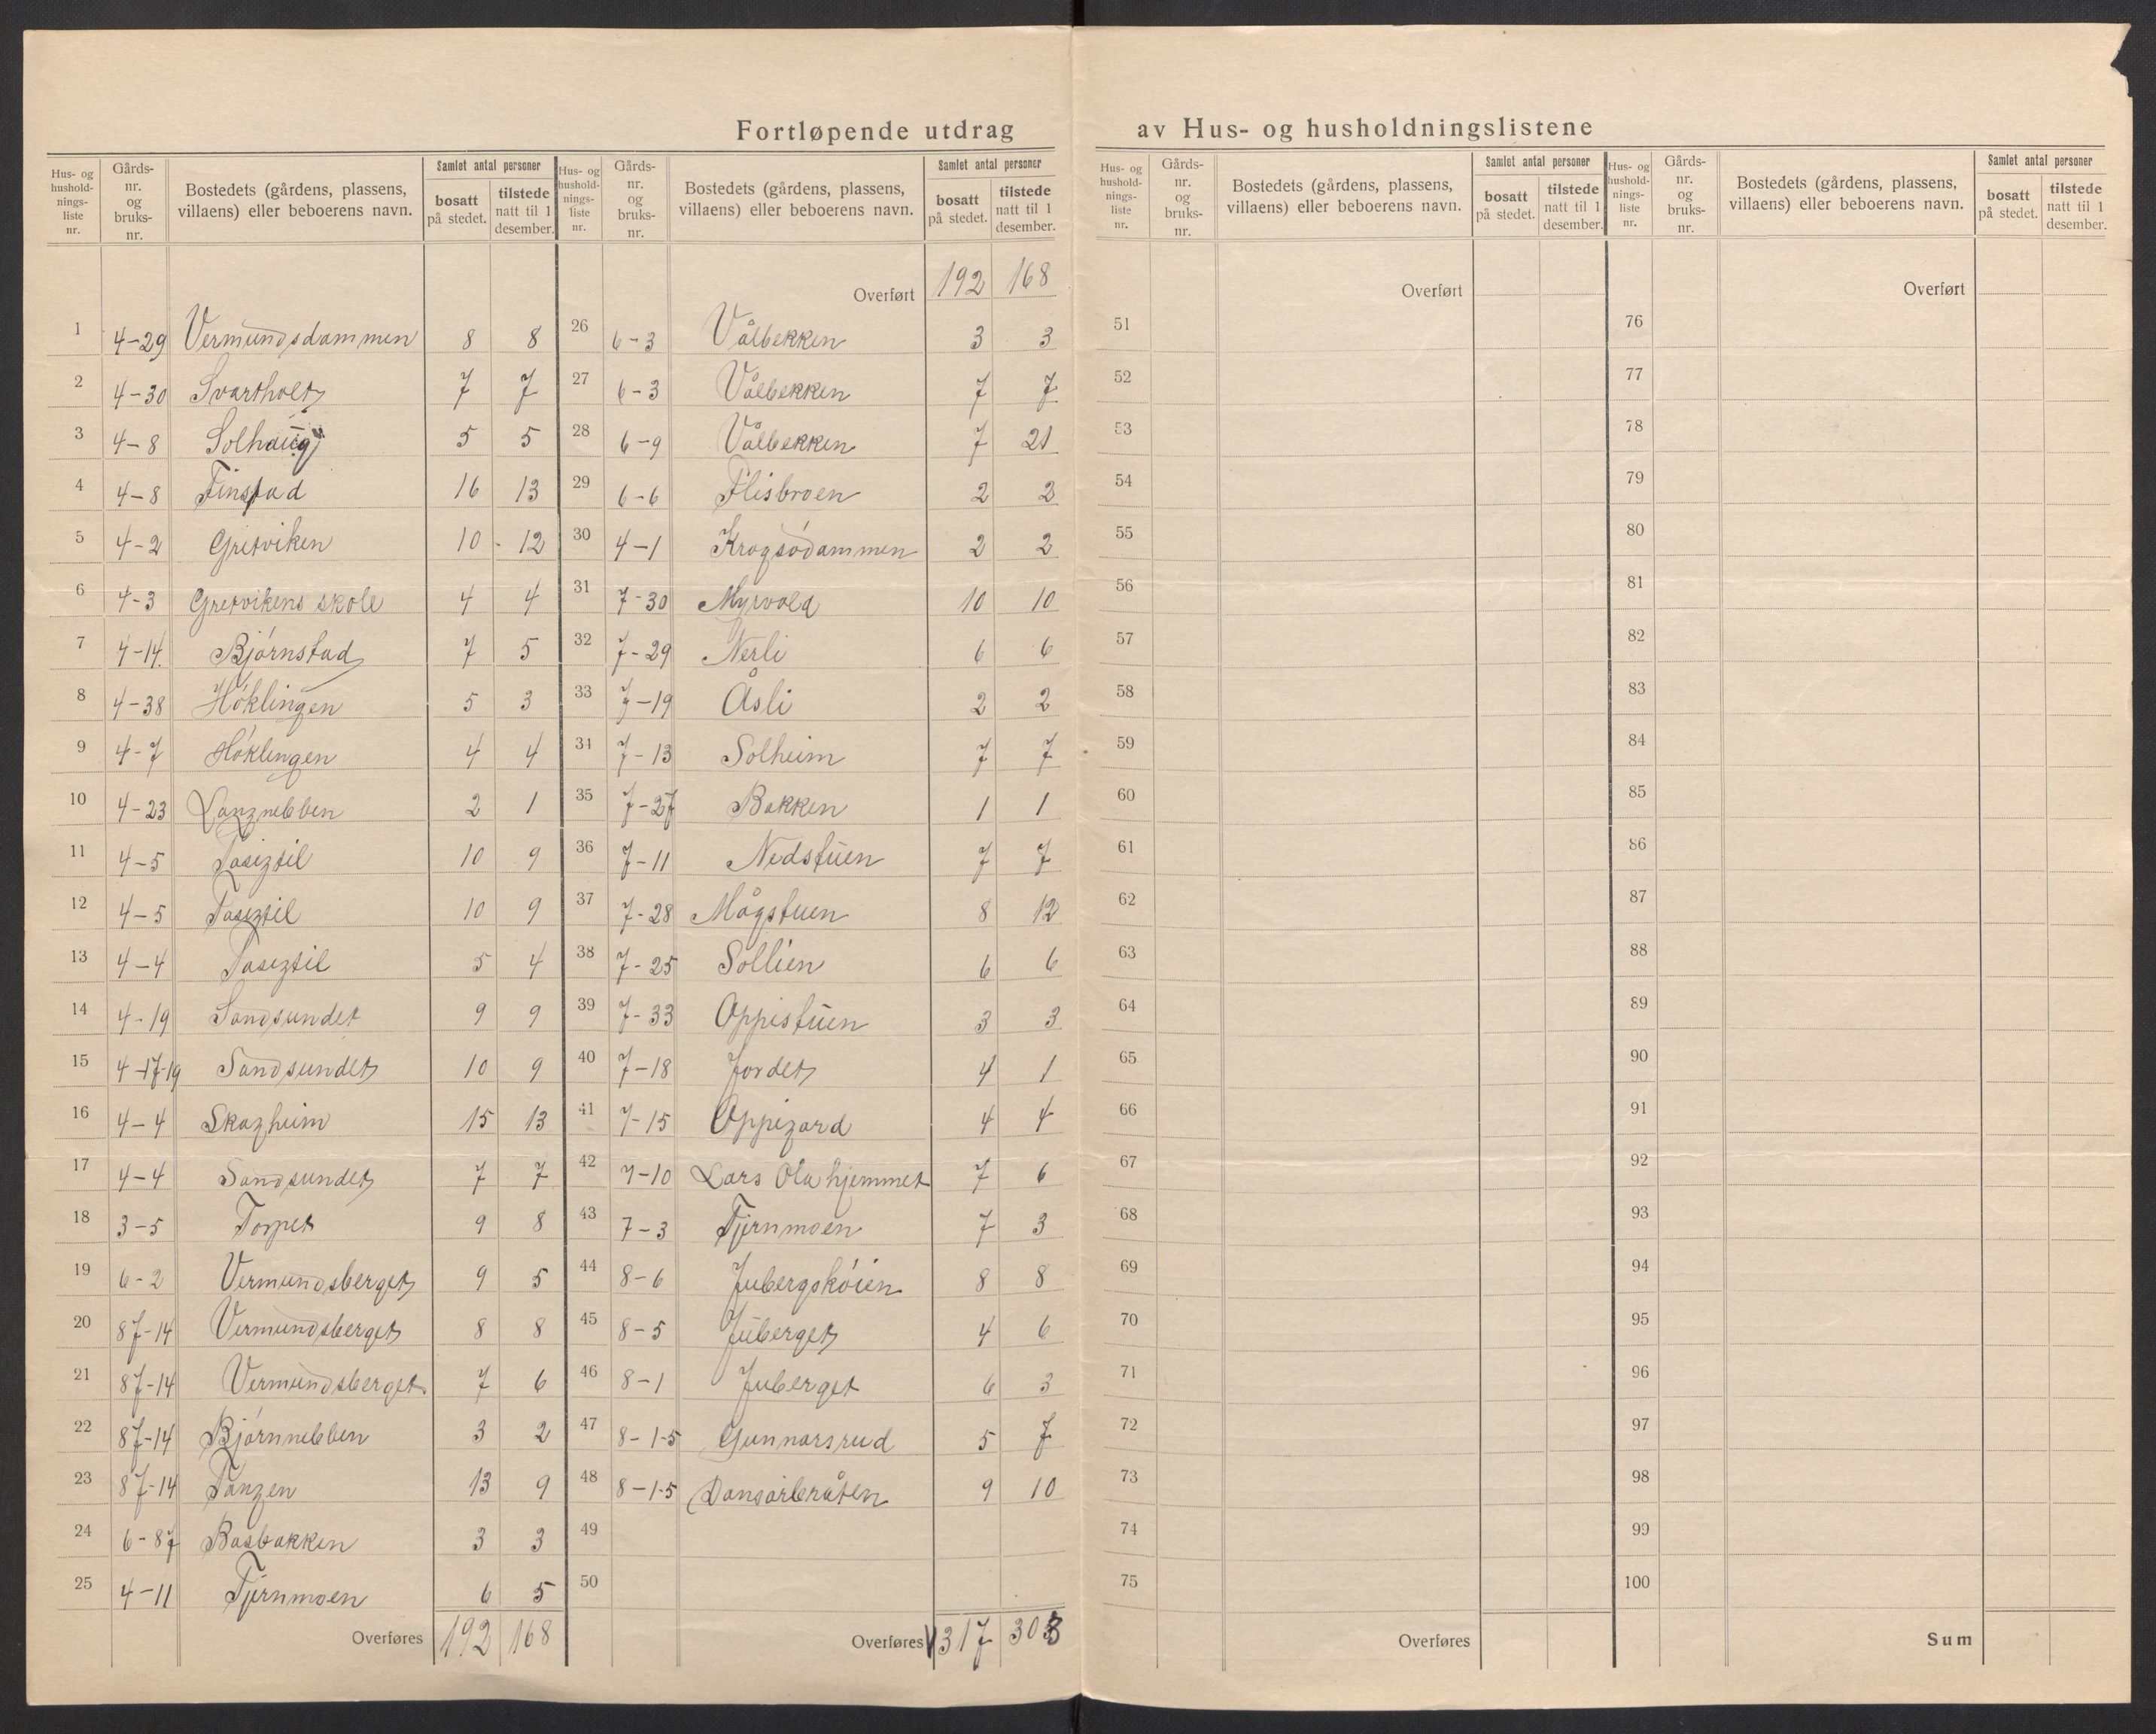 Fortløpende utdrag av Hus- og husholdningslistene
Hus- og husholdnings-liste nr. | Gårds-nr. og bruks-nr. | Bostedets (gårdens, plassens, villaens) eller beboerens navn. | Samlet antal personer bosatt på stedet. | tilstede natt til 1 desember.
1 4-29 Vermundsdammen 8 8
2 4-30 Svartholt 7 7
3 4-8 Solhaug 5 5
4 4-8 Finstad 16 13
5 4-2 Gretviken 10 12
6 4-3 Gretvikens skole 4 4
7 4-14. Bjørnstad 7 5
8 4-38 Høklingen 5 3
9 4-7 Høklingen 4 4
10 4-23 Langnebben 2 1
11 4-5 10 9
12 4-5 10 9
13 4-4 5 4
14 4-19 Sandsundet 9 9
15 4-17-19 Sandsundet 10 9
16 4-4 Skagheim 15 13
17 4-4 Sandsundet 7 7
18 3-5 Torpet 9 8
19 6-2 Vermundsberget 9 5
20 87-14 Vermundsberget 8 8
21 87-14 Vermundsberget 7 6
22 87-14 Bjørnnebben 3 2
23 87-14 Tangen 13 9
24 6-87 Basbakken 3 3
25 4-11 Tjernmoen 6 5
Overføres 192 168
Hus- og husholdnings-liste nr. | Gårds-nr. og bruks-nr. | Bostedets (gårdens, plassens, villaens) eller beboerens navn. | Samlet antal personer bosatt på stedet. | tilstede natt til 1 desember.
Overført 192 168
26 6-3 Vålbekken 3 3
27 6-3 Vålbekken 7 7
28 6-9 Vålbekken 7 21
29 6-6 Flisbroen 2 2
30 4-1 Krogsødammen 2 2
31 7-30 Myrvold 10 10
32 7-29 Nerli 6 6
33 7-19 Åsli 2 2
34 7-13 Solheim 7 7
35 7-27 Bakken 1 1
36 7-11 Nedstuen 7 7
37 7-28 Mågstuen 8 12
38 7-25 Sollien 6 6
39 7-33 Oppistuen 3 3
40 7-18 Jordet 4 1
41 7-15 Oppigard 4 4
42 7-10 Lars Ola hjemmet 7 6
43 7-3 Tjernmoen 7 3
44 8-6 Jubergskøien 8 8
45 8-5 Juberget 4 6
46 8-1 Juberget 6 3
47 8-1-5 Gunnarsrud 5 7
48 8-1-5 Dansarbråten 9 10
49
50
Overføres 317 303
Hus- og husholdnings-liste nr. | Gårds-nr. og bruks-nr. | Bostedets (gårdens, plassens, villaens) eller beboerens navn. | Samlet antal personer bosatt på stedet. | tilstede natt til 1 desember.
Overført
51
52
53
54
55
56
57
58
59
60
61
62
63
64
65
66
67
68
69
70
71
72
73
74
75
Overføres
Hus- og husholdnings-liste nr. | Gårds-nr. og bruks-nr. | Bostedets (gårdens, plassens, villaens) eller beboerens navn. | Samlet antal personer bosatt på stedet. | tilstede natt til 1 desember.
Overført
76
77
78
79
80
81
82
83
84
85
86
87
88
89
90
91
92
93
94
95
96
97
98
99
100
Sum